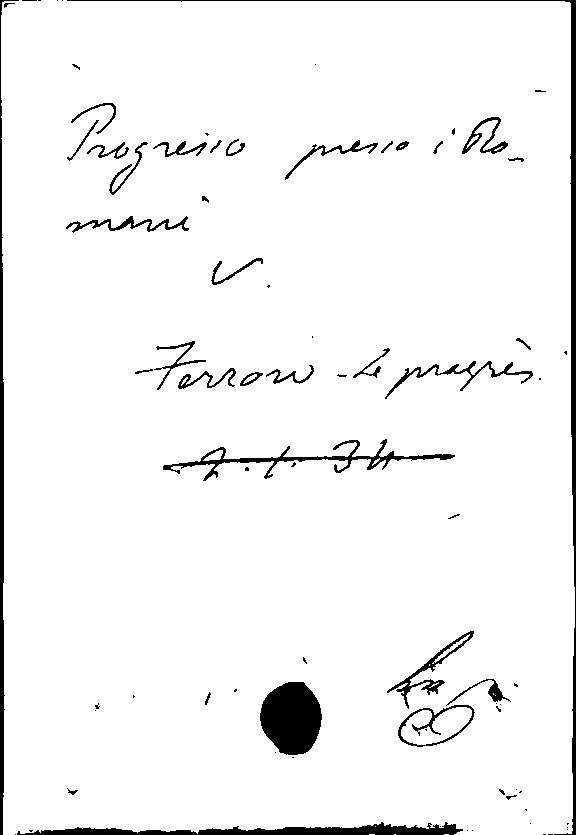 Progresso presso i Ro-
mani
V.
Ferrero - Le progrès.
2.1.34